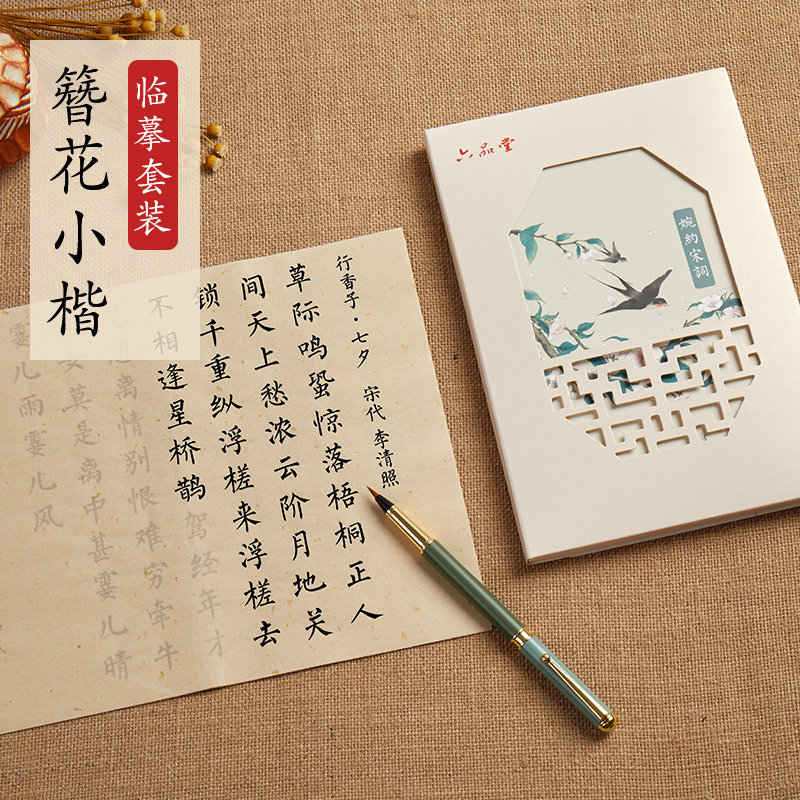 簪花小楷
临摹套装
六品堂
婉約宋詞
行香子·七夕 宋代 李清照
草际鸣蛩惊落梧桐正人
间天上愁浓云阶月地关
锁千重纵浮槎来浮槎去
不相逢星桥鹊驾经年才
离情别恨难穷牵牛
女莫是离中甚霎儿晴
霎儿雨霎儿风